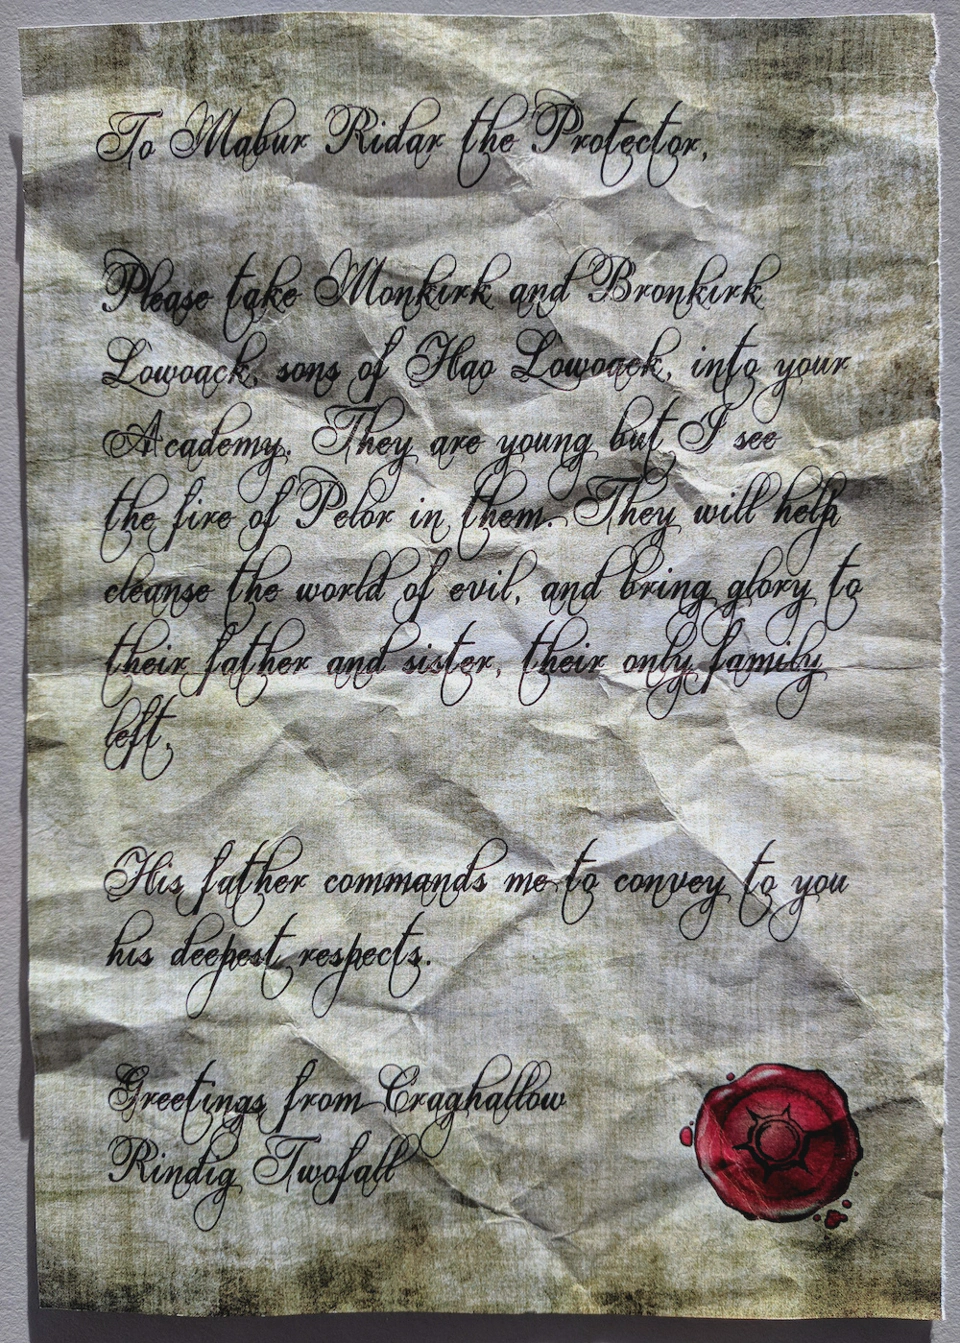 To Mabur Ridar the Protector,
Please take Monkirk and Bronkirk
Lowoack, sons of Hao Lowoack, into your
Academy. They are young but I see
the fire of Pelor in them. They will help
cleanse the world of evil, and bring glory to
their father and sister, their only family
left,
His father commands me to convey to you
his deepest respects.
Greetings from Craghallow
Rindig Twofall